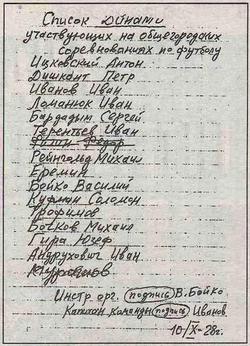 Список Динамо
участвующих на общегородских
соревнованиях по футболу
Ицковский Антон.
Дишкант Петр
Иванов Иван
Ломанюк Иван
Бардадым Сергей
Терентьев Иван
Рейнгольд Михаил
Еремин
Бойко Василий
Куфман Соломон
Трофимов
Бочков Михаил
Гира Юзеф
Андрухович Иван
Инстр. орг. подпись В. Бойко
Капитан команды подпись Иванов
10/IX-28г.